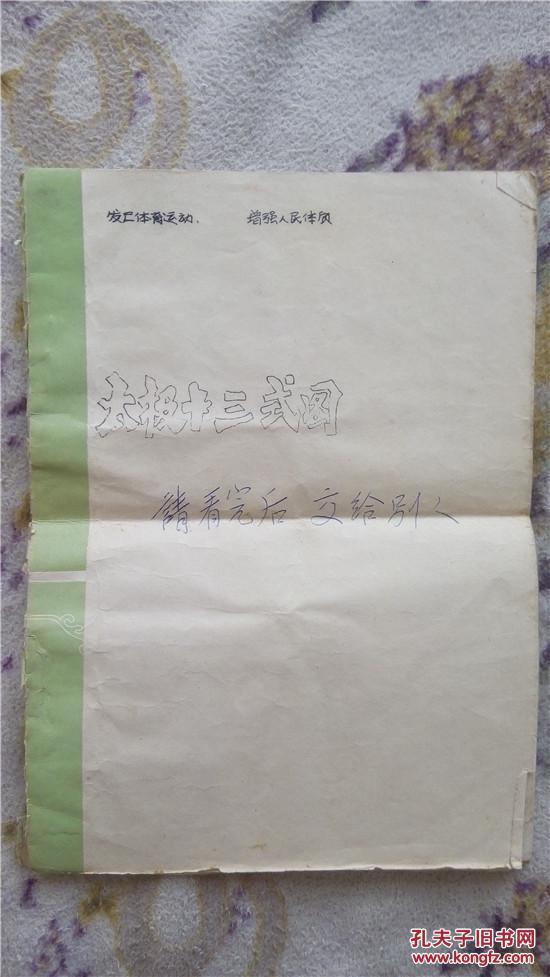 发展体育运动、 增强人民体质
太极十三式图
请看完后 交给别人
孔夫子旧书网
www.kongfz.com